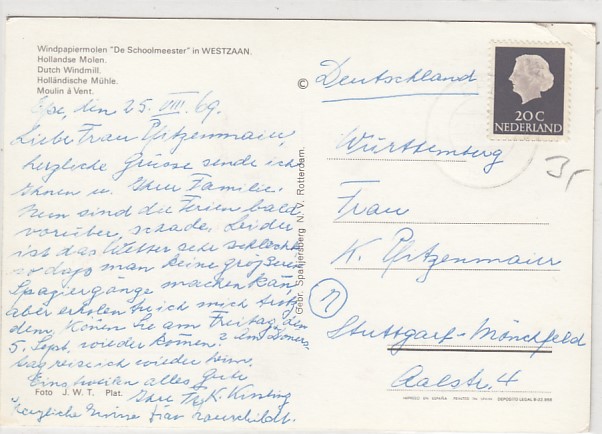 Windpapiermolen "De Schoolmeester" in WESTZAAN.
Hollandse Molen.
Dutch Windmill.
Holländische Mühle.
Moulin á Vent.
Epe, den 25. VIII. 69.
Liebe Frau Pfitzenmaier,
herzliche Grüsse sende ich
Ihnen u. Ihrer Familie.
Nun sind die Ferien bald
vorüber, schade. Leider
ist das Wetter sehr schlecht
so dass man keine grösseren
Spaziergänge machen kan,
aber erholen tu ich mich trotz
dem. Könen Sie am Freitag den
5. Sept. wieder komen?
tag reise ich wieder heim.
Einstweilen alles Gute
Ihre K.
herzliche Grüsse Frau
Foto J. W. T. Plat.
©
Gebr. Spanjersberg N. V. Rotterdam.
20 C
NEDERLAND
Deutschland
Württemberg
Frau
K. Pfitzenmaier
Stuttgart-Mönchfeld
Aalstr. 4
IMPRESO EN ESPAÑA
DEPOSITO LEGAL B-23.868